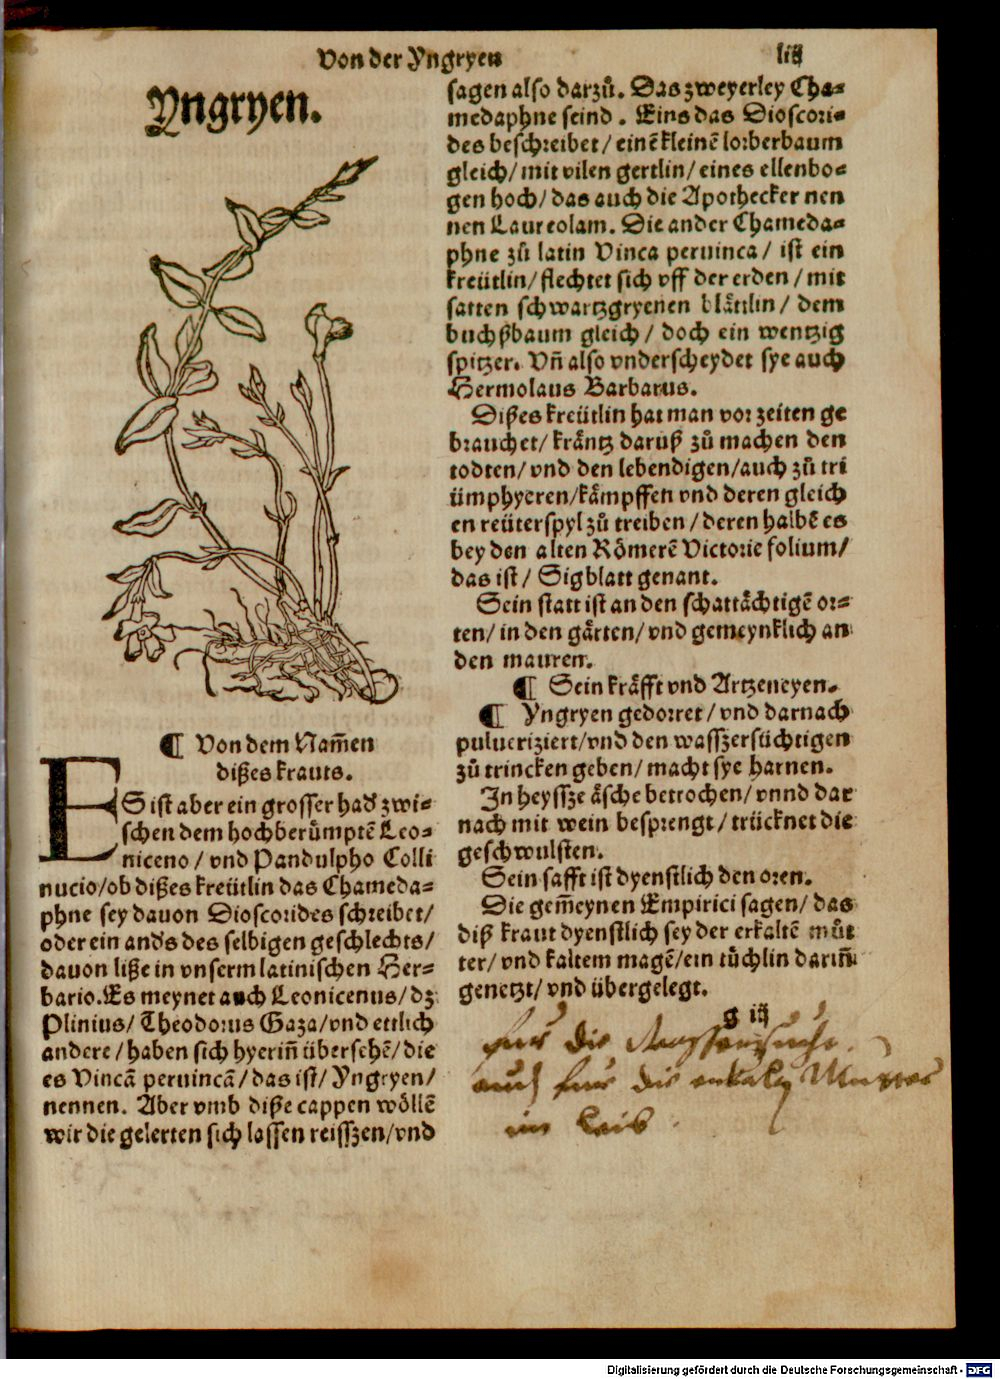 Von der Yngryen
liij
Yngryen.
¶ Von dem Nam̃en
dißes krauts.
ES ist aber ein grosser had͛ zwi⸗
schen dem hochberuͤmptẽ Leo⸗
niceno / vnd Pandulpho Colli
nucio/ob dißes kreütlin das Chameda⸗
phne sey dauon Dioscorides schreibet/
oder ein and͛s des selbigen geschlechts/
dauon liße in vnserm latinischen Her⸗
bario.Es meynet auch Leonicenus/dz
Plinius/ Theodorus Gaza/vnd ettlich
andere / haben sich hyeriñ übersehẽ/die
es Vincã peruincã/das ist/ Yngryen/
nennen. Aber vmb diße cappen woͤllẽ
wir die gelerten sich lassen reisszen/vnd
sagen also darzuͦ. Das zweyerley Cha⸗
medaphne seind . Eins das Dioscori⸗
des beschreibet/ einẽ kleinẽ lorberbaum
gleich/ mit vilen gertlin/ eines ellenbo⸗
gen hoch/ das auch die Apothecker nen
nen Laureolam. Die ander Chameda⸗
phne zuͦ latin Vinca peruinca/ ist ein
kreütlin/ flechtet sich vff der erden / mit
satten schwartzgryenen blaͤttlin/ dem
buchßbaum gleich / doch ein wentzig
spitzer. Vñ also vnderscheydet sye auch
Hermolaus Barbarus.
Dißes kreütlin hat man vor zeiten ge
brauchet/ kraͤntz daruß zuͦ machen den
todten/ vnd den lebendigen/auch zuͦ tri
ümphyeren/kaͤmpffen vnd deren gleich
en reüterspyl zuͦ treiben / deren halbẽ es
bey den alten Roͤmerẽ Victorie folium/
das ist / Sigblatt genant.
Sein statt ist an den schattaͤchtigẽ or⸗
ten/ in den gaͤrten/ vnd gemeynklich an
den mauren.
¶ Sein kraͤfft vnd Artzeneyen.
¶ Yngryen gedorret / vnd darnach
pulueriziert/vnd den wasszersüchtigen
zuͦ trincken geben/ macht sye harnen.
In heyssze aͤsche betrochen/ vnnd dar
nach mit wein besprengt/ trücknet die
geschwulsten.
Sein safft ist dyenstlich den oren.
Die gem̃eynen Empirici sagen/ das
diß kraut dyenstlich sey der erkaltẽ muͦt
ter/ vnd kaltem magẽ/ein tüchlin dariñ
genetzt/ vnd übergelegt.
g iij
fur die Wasserssucht.
auch fur die Mutter
im leib.
Digitalisierung gefördert durch die Deutsche Forschungsgemeinschaft - DFG